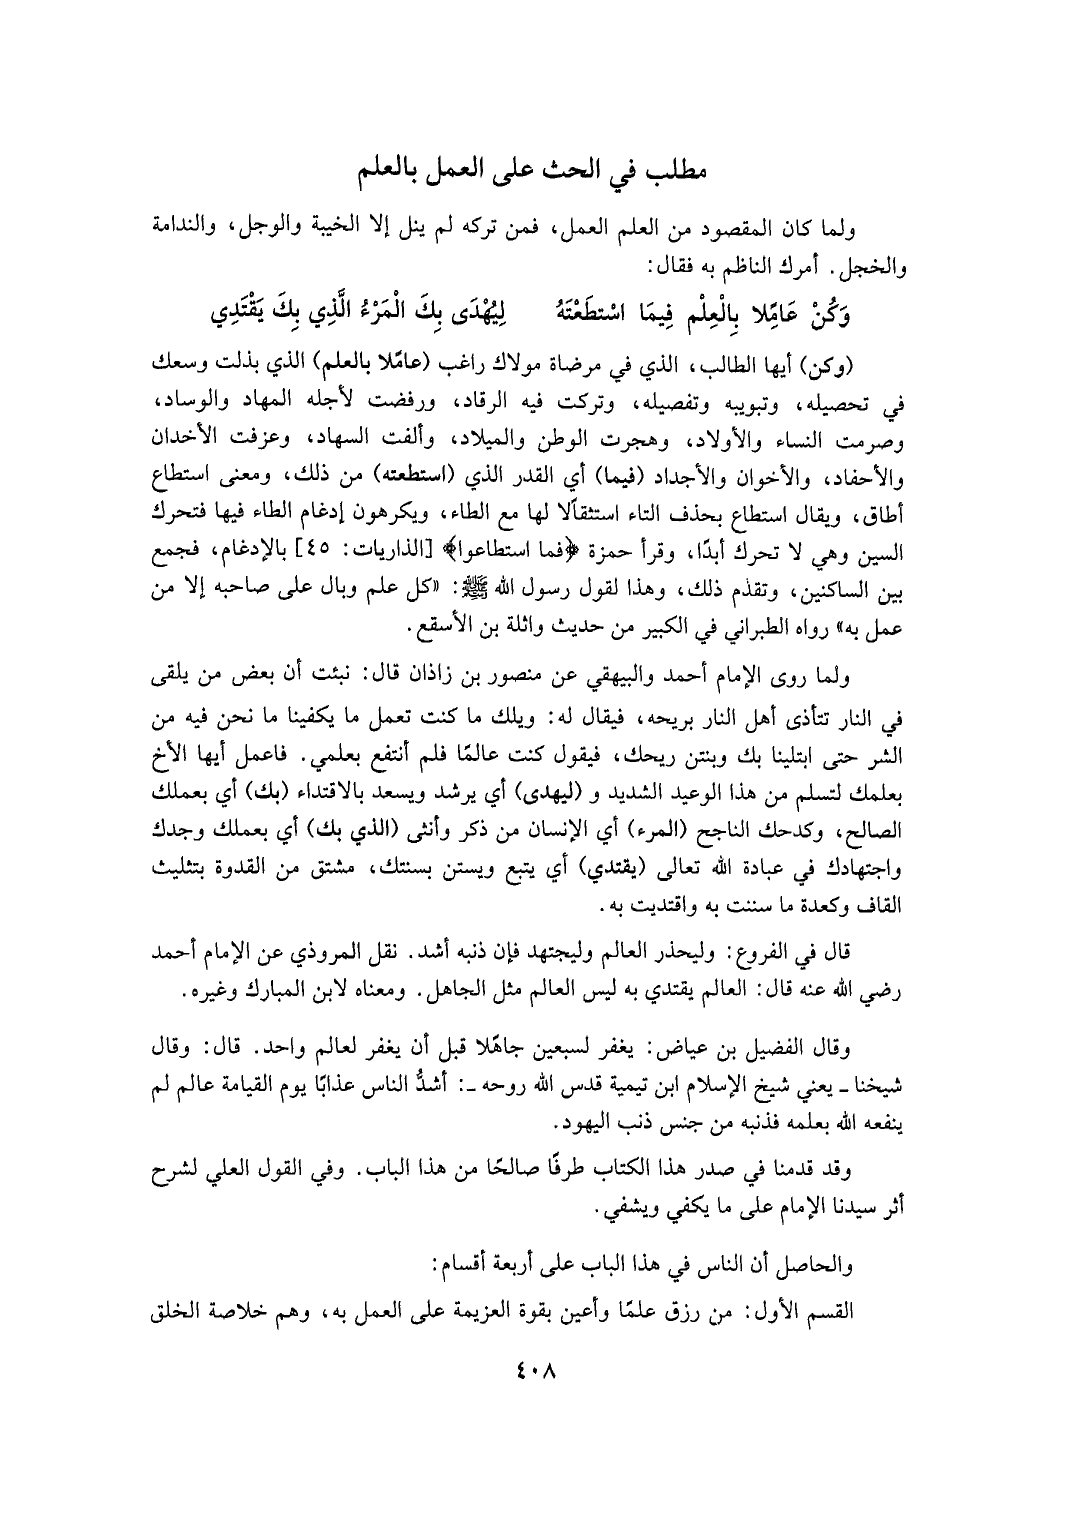 مطلب في الحث على العمل بالعلم
ولما كان المقصود من العلم العمل، فمن تركه لم ينل إلا الخيبة والوجل، والندامة
والخجل. أمرك الناظم به فقال:
وَكُنْ عَامِّلا بِالْعِلْمِ فِيمَا اسْتطَعْتَهُ لِيُهْدَى بِكَ الْمَرْءُ الَّذِي بِكَ يَقْتَدِي
(وكن) أيها الطالب، الذي في مرضاة مولاك راغب (عامًلا بالعلم) الذي بذلت وسعك
في تحصيله، وتبويبه وتفصيله، وتركت فيه الرقاد، ورفضت لأجله المهاد والوساد،
وصرمت النساء والأولاد، وهجرت الوطن والميلاد، وألفت السهاد، وعزفت الأخدان
والأحفاد، والأخوان والأجداد (فيما) أي القدر الذي (استطعته) من ذلك، ومعنى استطاع
أطاق، ويقال استطاع بحذف التاء استثقاًلا لها مع الطاء، ويكرهون إدغام الطاء فيها فتحرك
السين وهي لا تحرك أبدًا، وقرأ حمزة ﴿فما استطاعوا﴾ [الذاريات: ٤٥] بالإدغام، فجمع
بين الساكنين، وتقدم ذلك، وهذا لقول رسول الله ﷺ: «كل علم وبال على صاحبه إلا من
عمل به» رواه الطبراني في الكبير من حديث واثلة بن الأسقع.
ولما روى الإمام أحمد والبيهقي عن منصور بن زاذان قال: نبئت أن بعض من يلقى
في النار تتأذى أهل النار بريحه، فيقال له: ويلك ما كنت تعمل ما يكفينا ما نحن فيه من
الشر حتى ابتلينا بك وبنتن ريحك، فيقول كنت عالمًا فلم أنتفع بعلمي. فاعمل أيها الأخ
بعلمك لتسلم من هذا الوعيد الشديد و (ليهدى) أي يرشد ويسعد بالاقتداء (بك) أي بعملك
الصالح، وكدحك الناجح (المرء) أي الإنسان من ذكر وأنثى (الذي بك) أي بعملك وجدك
واجتهادك في عبادة الله تعالى (يقتدي) أي يتبع ويستن بسنتك، مشتق من القدوة بتثليث
القاف وكعدة ما سننت به واقتديت به.
قال في الفروع: وليحذر العالم وليجتهد فإن ذنبه أشد. نقل المروذي عن الإمام أحمد
رضي الله عنه قال: العالم يقتدي به ليس العالم مثل الجاهل. ومعناه لابن المبارك وغيره.
وقال الفضيل بن عياض: يغفر لسبعين جاهًلا قبل أن يغفر لعالم واحد. قال: وقال
شيخنا ـ يعني شيخ الإسلام ابن تيمية قدس الله روحه ـ: أشدُّ الناس عذابًا يوم القيامة عالم لم
ينفعه الله بعلمه فذنبه من جنس ذنب اليهود.
وقد قدمنا في صدر هذا الكتاب طرفًا صالحًا من هذا الباب. وفي القول العلي لشرح
أثر سيدنا الإمام على ما يكفي ويشفي.
والحاصل أن الناس في هذا الباب على أربعة أقسام:
القسم الأول: من رزق علمًا وأعين بقوة العزيمة على العمل به، وهم خلاصة الخلق
٤٠٨